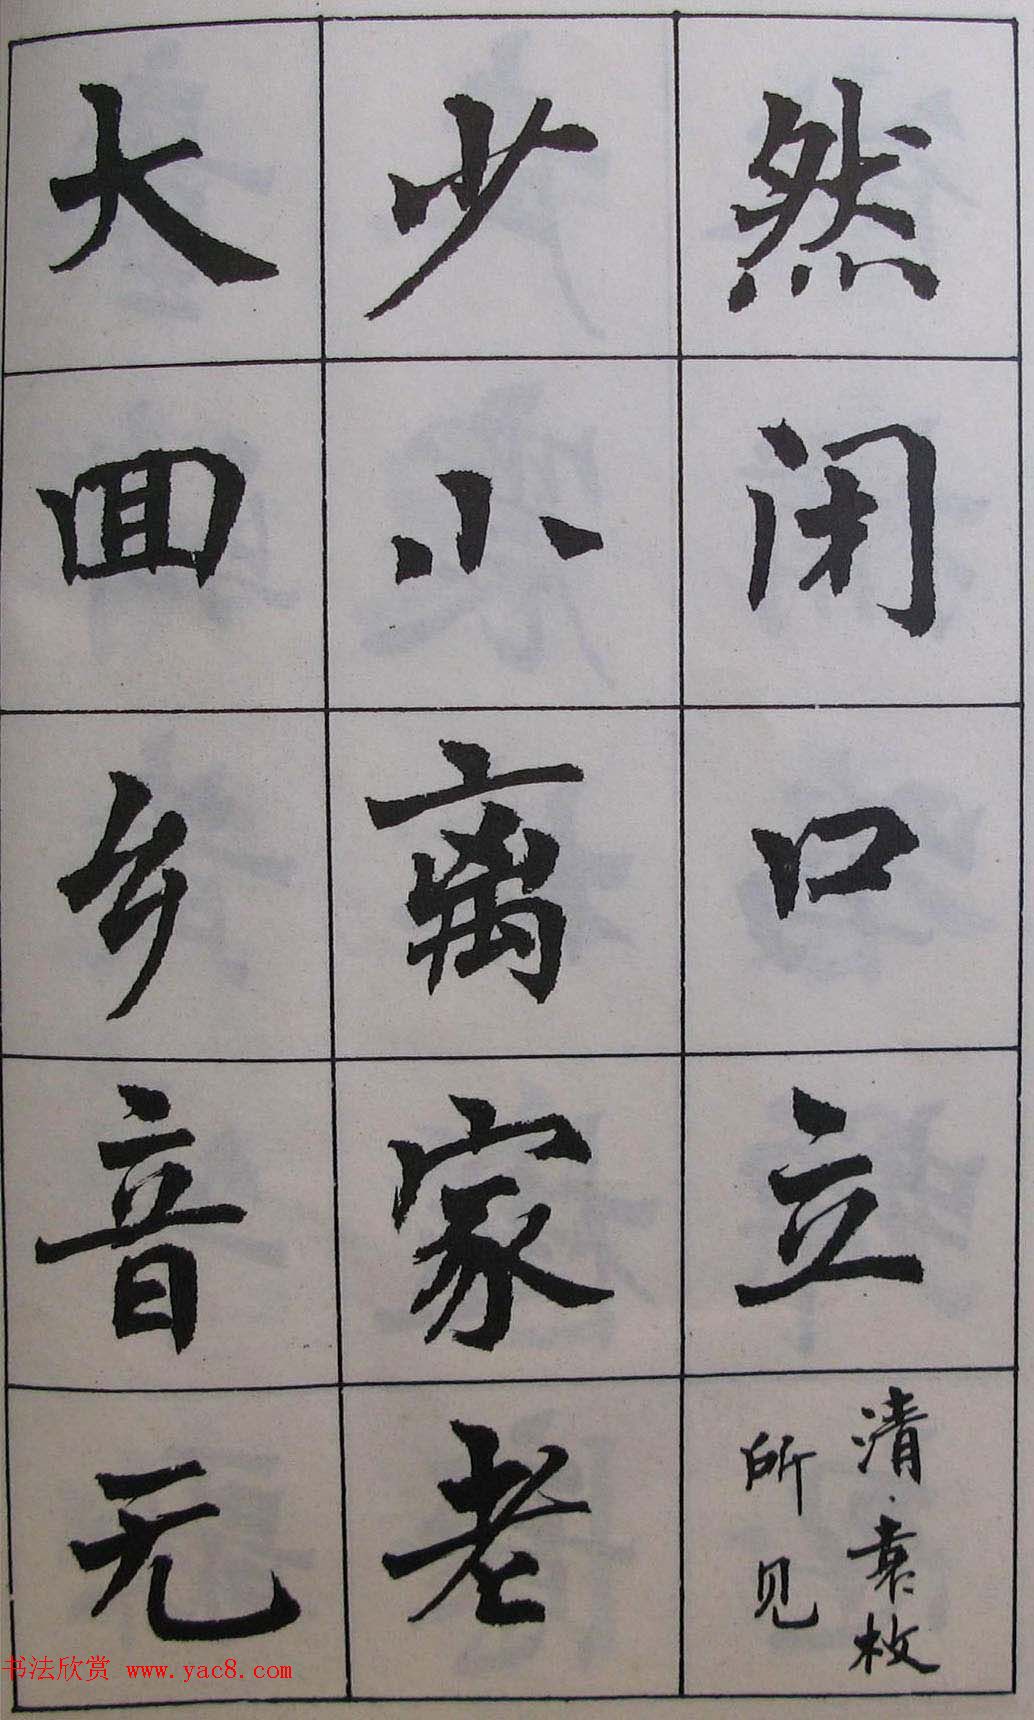 然闭口立
清·袁枚
所见
少小离家老
大回乡音无
书法欣赏 www.yac8.com